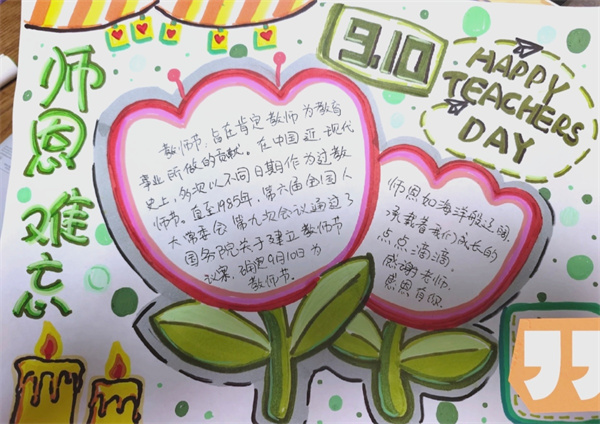 师恩难忘
9.10
HAPPY
TEACHERS
DAY
教师节,旨在肯定教师为教育
事业所做的贡献。在中国近现代
史上,多次以不同日期作为过教
师节。直至1985年,第六届全国人
大常委会第九次会议通过了
国务院关于建立教师节
议案,确定9月10日为
教师节.
师恩如海洋般辽阔
承载着我们成长的
点点滴滴,
感谢老师,
感恩有你.